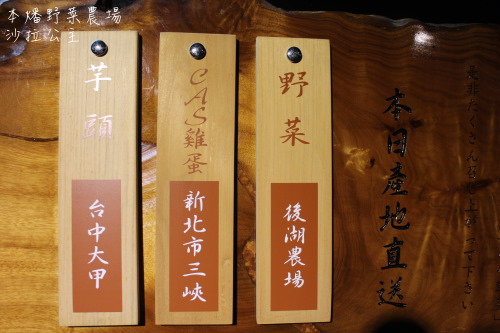 本燔野菜農場
沙拉公主
芋頭
台中大甲
CAS雞蛋
新北市三峽
野菜
後湖農場
本日產地直送